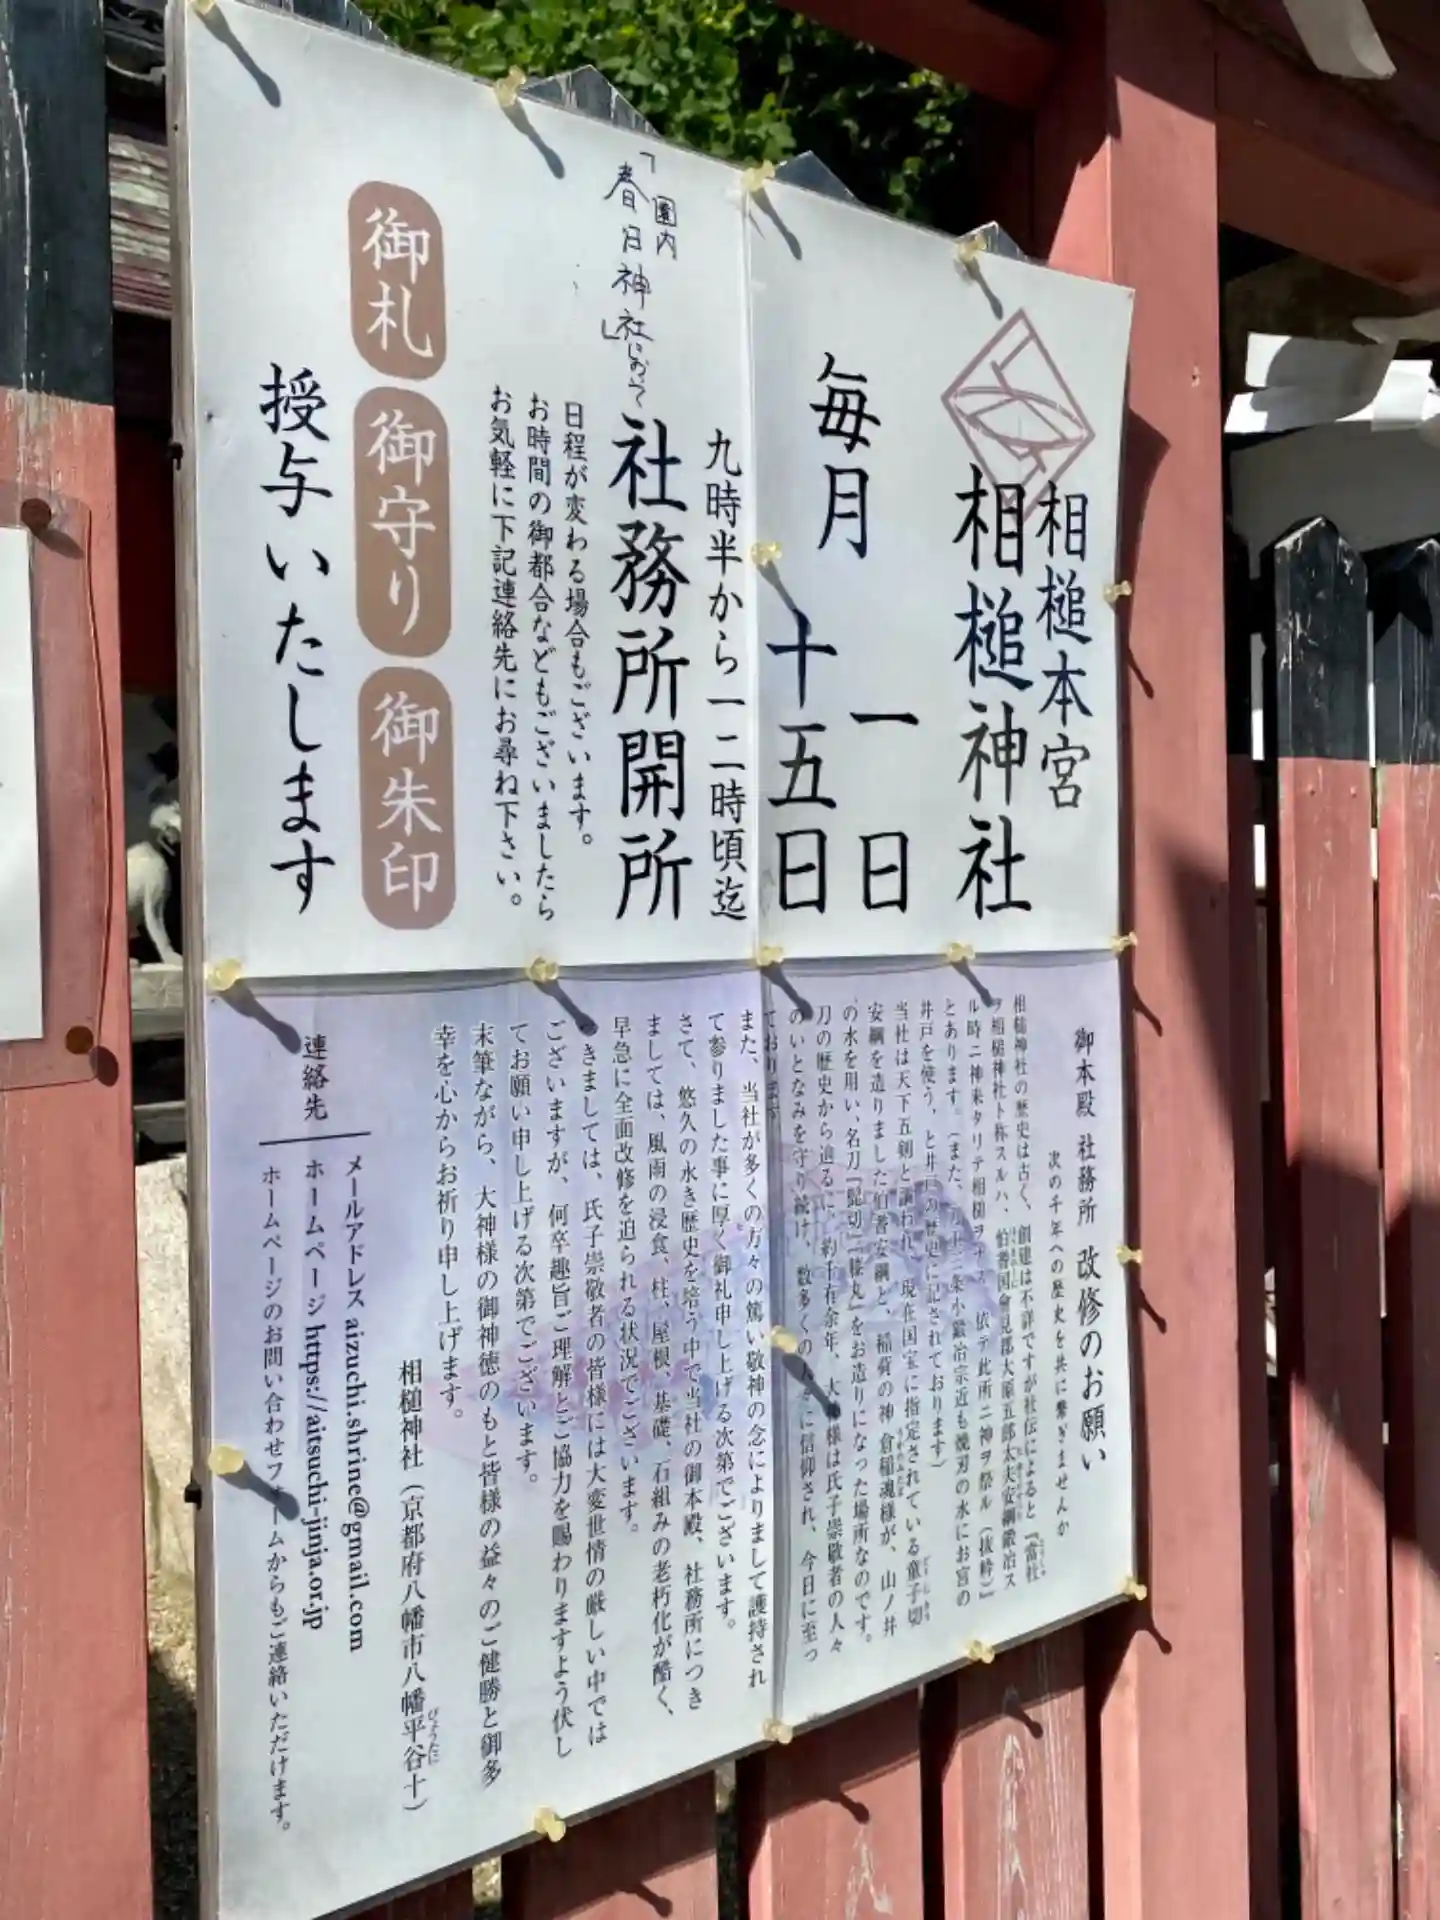 相槌本宮
相槌神社
毎月
一日
十五日
九時半から一二時頃迄
「園内
春日神社」において
社務所開所
日程が変わる場合もございます。
お時間の御都合などもございましたら
お気軽に下記連絡先にお尋ね下さい。
御札
御守り
御朱印
授与いたします
御本殿 社務所 改修のお願い
次の千年への歴史を共に繋ぎませんか
相槌神社の歴史は古く、創建は不詳ですが社伝によると『當社
ヲ相槌神社ト称スルハ、伯耆国會見郡大原五郎太夫安綱鍛冶ス
ル時ニ神来タリテ相槌ヲ 依テ此所ニ神ヲ祭ル（抜粋）』
とあります。（また、 三条小鍛冶宗近も焼刃の水にお宮の
井戸を使う、と井戸の歴史に記されております）
当社は天下五剣と謳われ、現在国宝に指定されている童子切
安綱を造りました伯耆安綱と、稲荷の神 倉稲魂様が、山ノ井
の水を用い、名刀『髭切』『膝丸』をお造りになった場所なのです。
刀の歴史から遡るに、約千有余年、大神様は氏子崇敬者の人々
のいとなみを守り続け、数多くの人々に信仰され、今日に至っ
ております
また、当社が多くの方々の篤い敬神の念によりまして護持され
て参りました事に厚く御礼申し上げる次第でございます。
さて、悠久の永き歴史を培う中で当社の御本殿、社務所につき
ましては、風雨の浸食、柱、屋根、基礎、石組みの老朽化が酷く、
早急に全面改修を迫られる状況でございます。
つきましては、氏子崇敬者の皆様には大変世情の厳しい中では
ございますが、何卒趣旨ご理解とご協力を賜わりますよう伏し
てお願い申し上げる次第でございます。
末筆ながら、大神様の御神徳のもと皆様の益々のご健勝と御多
幸を心からお祈り申し上げます。
相槌神社（京都府八幡市八幡平谷十）
びょうたに
連絡先
メールアドレス aizuchi.shrine@gmail.com
ホームページ https://aitsuchi-jinja.or.jp
ホームページのお問い合わせフォームからもご連絡いただけます。